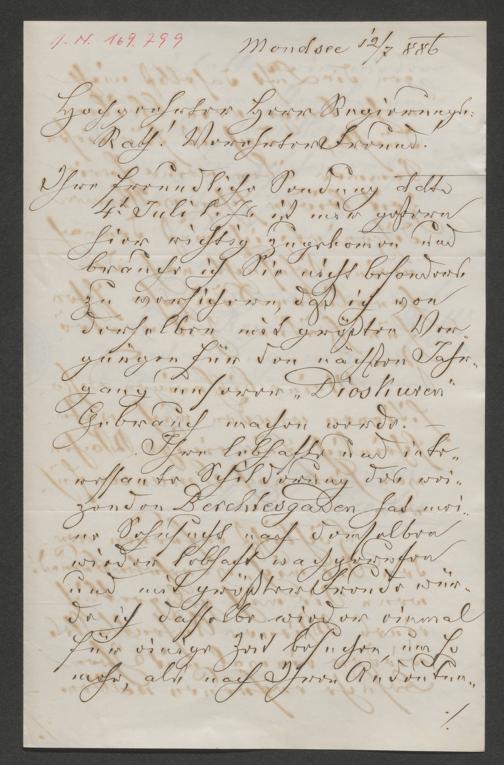 J. N. 169.799
Mondsee 12/7 886
Hochgeehrter Herr Regierungs-
Rath! Verehrter Freund!
Ihre freundliche Sendung ddto
4t Juli l. Js ist mir gestern
hier richtig zugekomen und
brauche ich Sie nicht besonders
zu versichern, daß ich von
derselben mit größten Ver
gnügen für den nächsten Jahr-
gang unserer „Dioskuren"
Gebrauch machen werde. —
Ihre lebhafte und inte-
ressante Schilderung des rei-
zenden Berchtesgaden hat mei-
ne Sehnsucht nach demselben
wieder lebhaft wachgerufen
und mit größter Freude wür-
de ich dasselbe wieder einmal
für einige Zeit besuchen, um so
mehr, als nach Ihren Andeutun-
./.